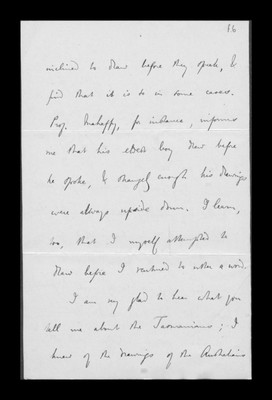 16
inclined to draw before they speak, &
find that it is so in some cases.
Prof. Mahaffy, for instance, informs
me that his eldest boy drew before
he spoke, & strangely enough his drawings
were always upside down. I learn,
too, that I myself attempted to
draw before I ventured to utter a word.
I am very glad to hear what you
tell me about the Tasmanians; I
knew of the drawings of the Australians